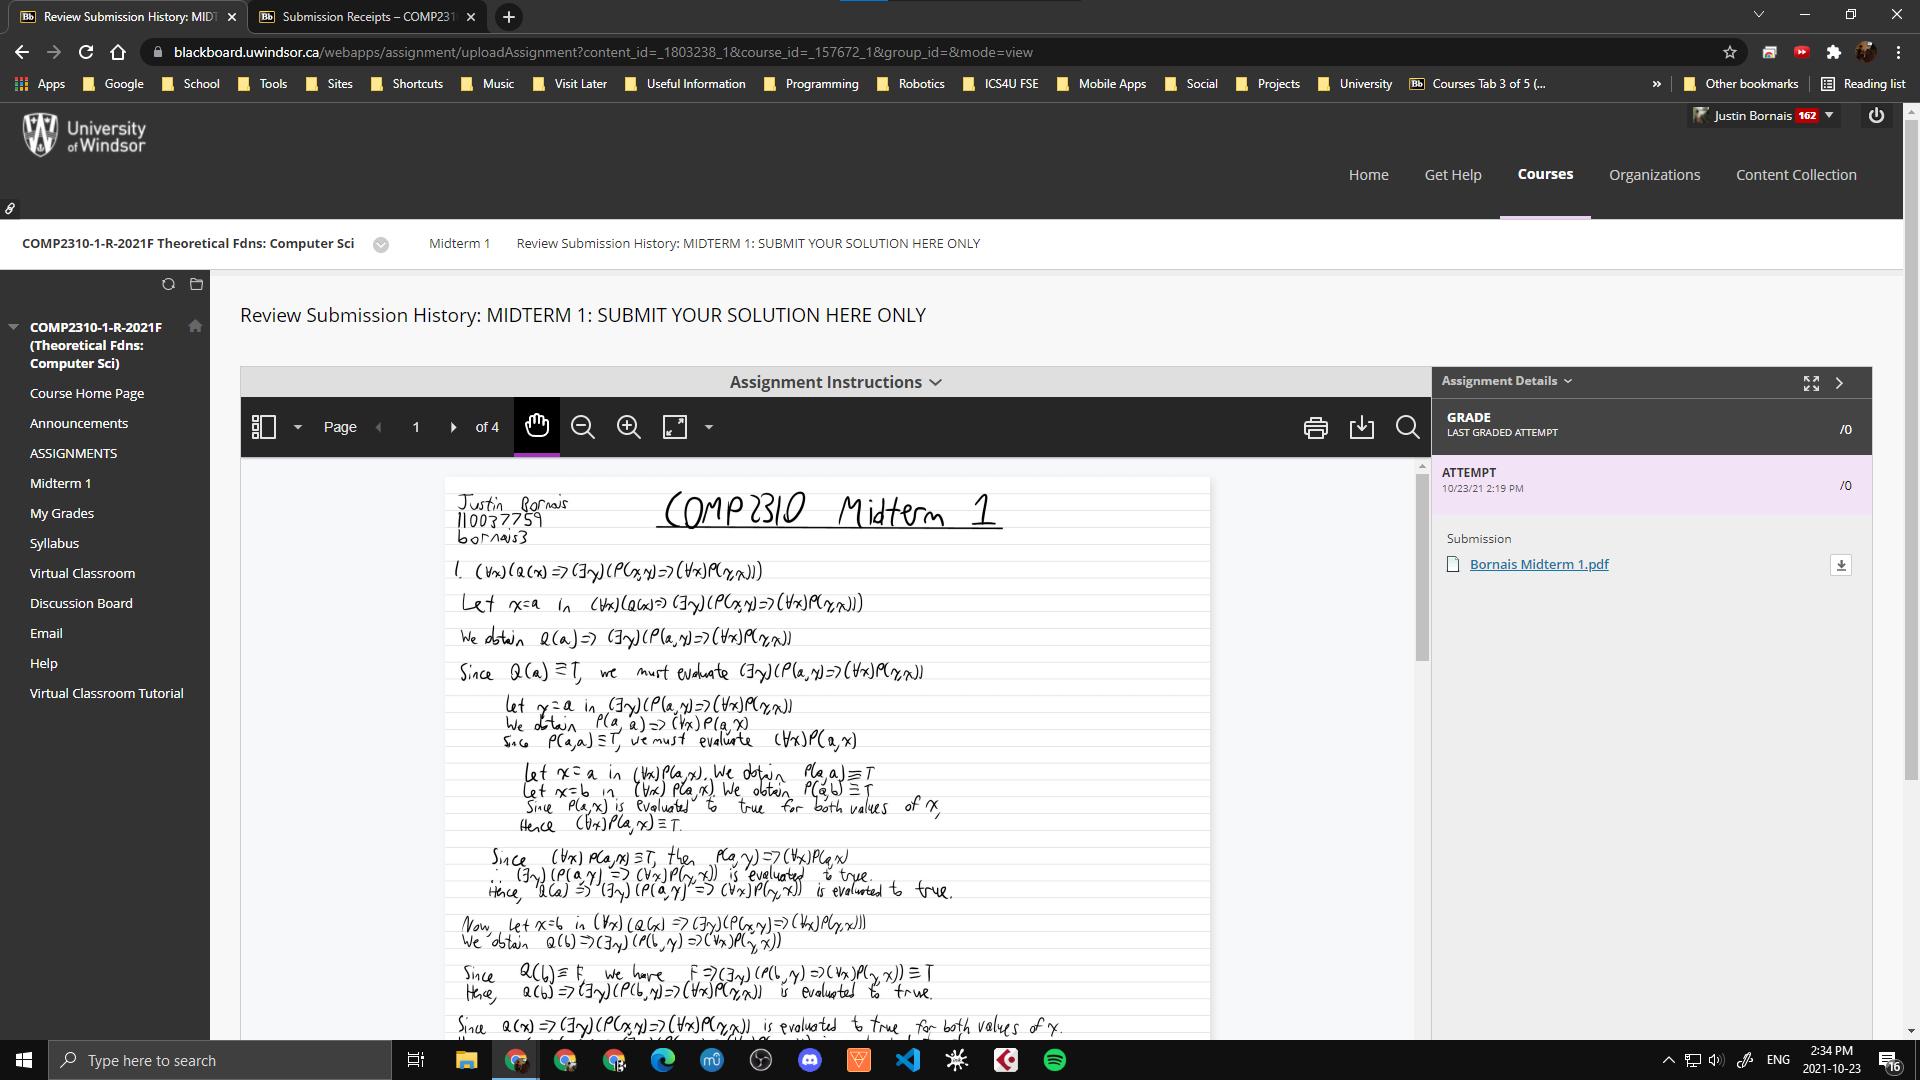 Review Submission History: MIDT
Submission Receipts – COMP231
blackboard.uwindsor.ca/webapps/assignment/uploadAssignment?content_id=_1803238_1&course_id=_157672_1&group_id=&mode=view
Apps Google School Tools Sites Shortcuts Music Visit Later Useful Information Programming Robotics ICS4U FSE Mobile Apps Social Projects University Courses Tab 3 of 5 (... » Other bookmarks Reading list
University
of Windsor
Justin Bornais 162
Home Get Help Courses Organizations Content Collection
COMP2310-1-R-2021F Theoretical Fdns: Computer Sci Midterm 1 Review Submission History: MIDTERM 1: SUBMIT YOUR SOLUTION HERE ONLY
COMP2310-1-R-2021F
(Theoretical Fdns:
Computer Sci)
Course Home Page
Announcements
ASSIGNMENTS
Midterm 1
My Grades
Syllabus
Virtual Classroom
Discussion Board
Email
Help
Virtual Classroom Tutorial
Review Submission History: MIDTERM 1: SUBMIT YOUR SOLUTION HERE ONLY
Assignment Instructions
Page 1 of 4
Justin Bornais
110037759
bornais3
COMP2310 Midterm 1
1. (∀x)(Q(x)=>(∃y)(P(x,y)=>(∀x)P(y,x)))
Let x=a in (∀x)(Q(x)=>(∃y)(P(x,y)=>(∀x)P(y,x)))
We obtain Q(a)=> (∃y)(P(a,y)=>(∀x)P(y,x))
Since Q(a)≡T, we must evaluate (∃y)(P(a,y)=>(∀x)P(y,x))
Let y=a in (∃y)(P(a,y)=>(∀x)P(y,x))
We obtain P(a,a)=>(∀x)P(a,x)
Since P(a,a)≡T, we must evaluate (∀x)P(a,x)
Let x=a in (∀x)P(a,x). We obtain P(a,a)≡T
Let x=b in (∀x)P(a,x). We obtain P(a,b)≡T
Since P(a,x) is evaluated to true for both values of x,
Hence (∀x)P(a,x)≡T.
Since (∀x)P(a,x)≡T, then P(a,y)=>(∀x)P(a,x)
∴ (∃y)(P(a,y)=>(∀x)P(y,x)) is evaluated to true.
Hence, Q(a)=>(∃y)(P(a,y)=>(∀x)P(y,x)) is evaluated to true.
Now, Let x=b in (∀x)(Q(x)=>(∃y)(P(x,y)=>(∀x)P(y,x)))
We obtain Q(b)=>(∃y)(P(b,y)=>(∀x)P(y,x))
Since Q(b)≡F, we have F=>(∃y)(P(b,y)=>(∀x)P(y,x))≡T
Hence, Q(b)=>(∃y)(P(b,y)=>(∀x)P(y,x)) is evaluated to true.
Since Q(x)=>(∃y)(P(x,y)=>(∀x)P(y,x)) is evaluated to true for both values of x.
Assignment Details
GRADE
LAST GRADED ATTEMPT /0
ATTEMPT
10/23/21 2:19 PM /0
Submission
Bornais Midterm 1.pdf
Type here to search
ENG
2:34 PM
2021-10-23
16